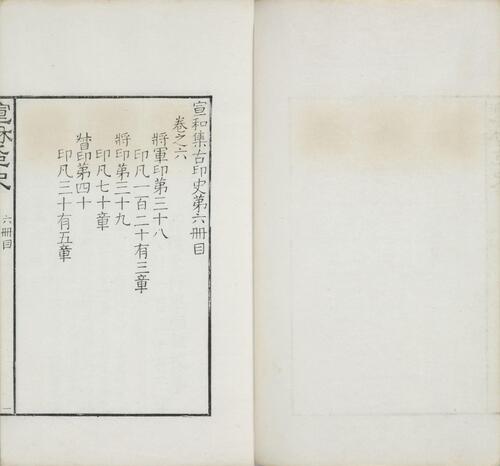 宣和集古印史第六冊目
卷之六
將軍印第三十八
印凡一百二十有三章
將印第三十九
印凡七十章
督印第四十
印凡三十有五章
六冊目
一